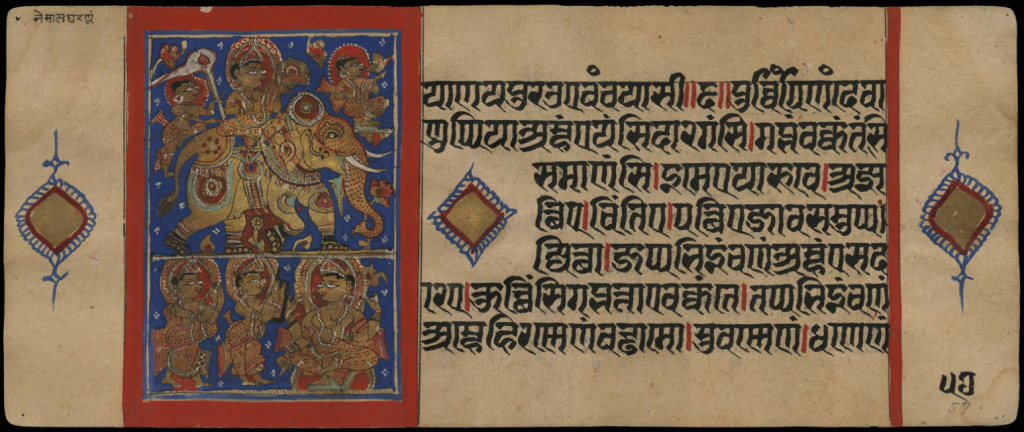 याणयपुरओएवंवयासी॥छ॥पुव्विंपिणंदेवा
णुप्पियाअम्हंएयंसिदारगंसि।गब्भंवक्कंतंसि
समाणंसि।इमेएयारूवे।अज्झ
त्थिए।चिंतिए।पत्थिएजावसमुप्प
ज्जित्था।जप्पभिइंचणंअम्हंएसदा
रए।कुच्छिंसिगब्भत्ताएवक्कंते।तप्पभिइंचणं
अम्हेहिरण्णेणंवड्ढामो।सुवण्णेणं।धणेणं
५७
57